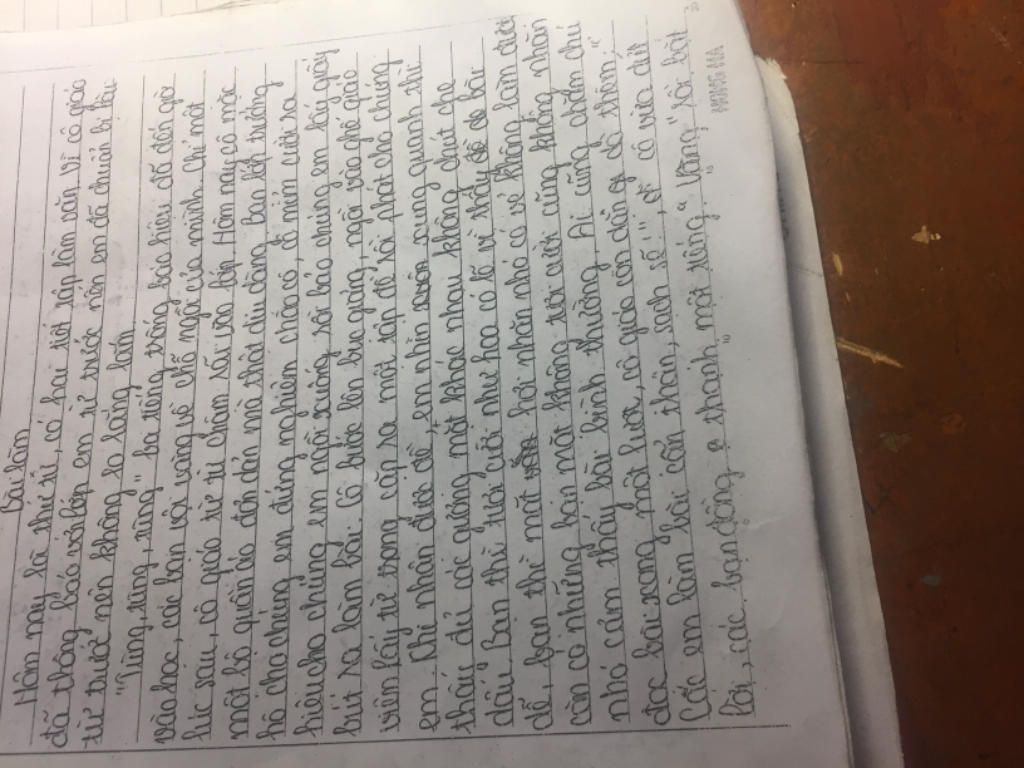 Bài làm
Hôm nay là thứ tư, có hai tiết tập làm văn vì cô giáo
đã thông báo với lớp em từ trước nên em đã chuẩn bị bài
từ trước nên không lo lắng lắm.
"Tùng, tùng, tùng" ba tiếng trống báo hiệu đã đến giờ
vào học, các bạn vội vàng về chỗ ngồi của mình. Chỉ một
lúc sau, cô giáo từ từ chậm rãi vào lớp. Hôm nay cô mặc
một bộ quần áo đơn giản mà thật dịu dàng, bạn lớp trưởng
hô cho chúng em đứng nghiêm chào cô, cô mỉm cười ra
hiệu cho chúng em ngồi xuống rồi bảo chúng em lấy giấy
bút ra làm bài. Cô bước lên bục giảng, ngồi vào ghế giáo
viên lấy từ trong cặp ra một tập đề rồi phát cho chúng
em. Khi nhận được đề, em nhìn xung quanh thì
thấy đủ các gương mặt khác nhau không chút che
dấu. Bạn thì tươi cười như hoa có lẽ vì thấy đề bài
dễ, bạn thì mặt hơi nhăn nhó có vẻ không làm được
còn có những bạn mặt không tươi cười cũng không nhăn
nhó cảm thấy bài bình thường. Ai cũng chăm chú
đọc bài xong một lượt, cô giáo còn dặn dò thêm:
"Các em làm bài cẩn thận, sạch sẽ!", cô vừa dứt
lời, các bạn đồng thanh một tiếng "Vâng" rồi bắt